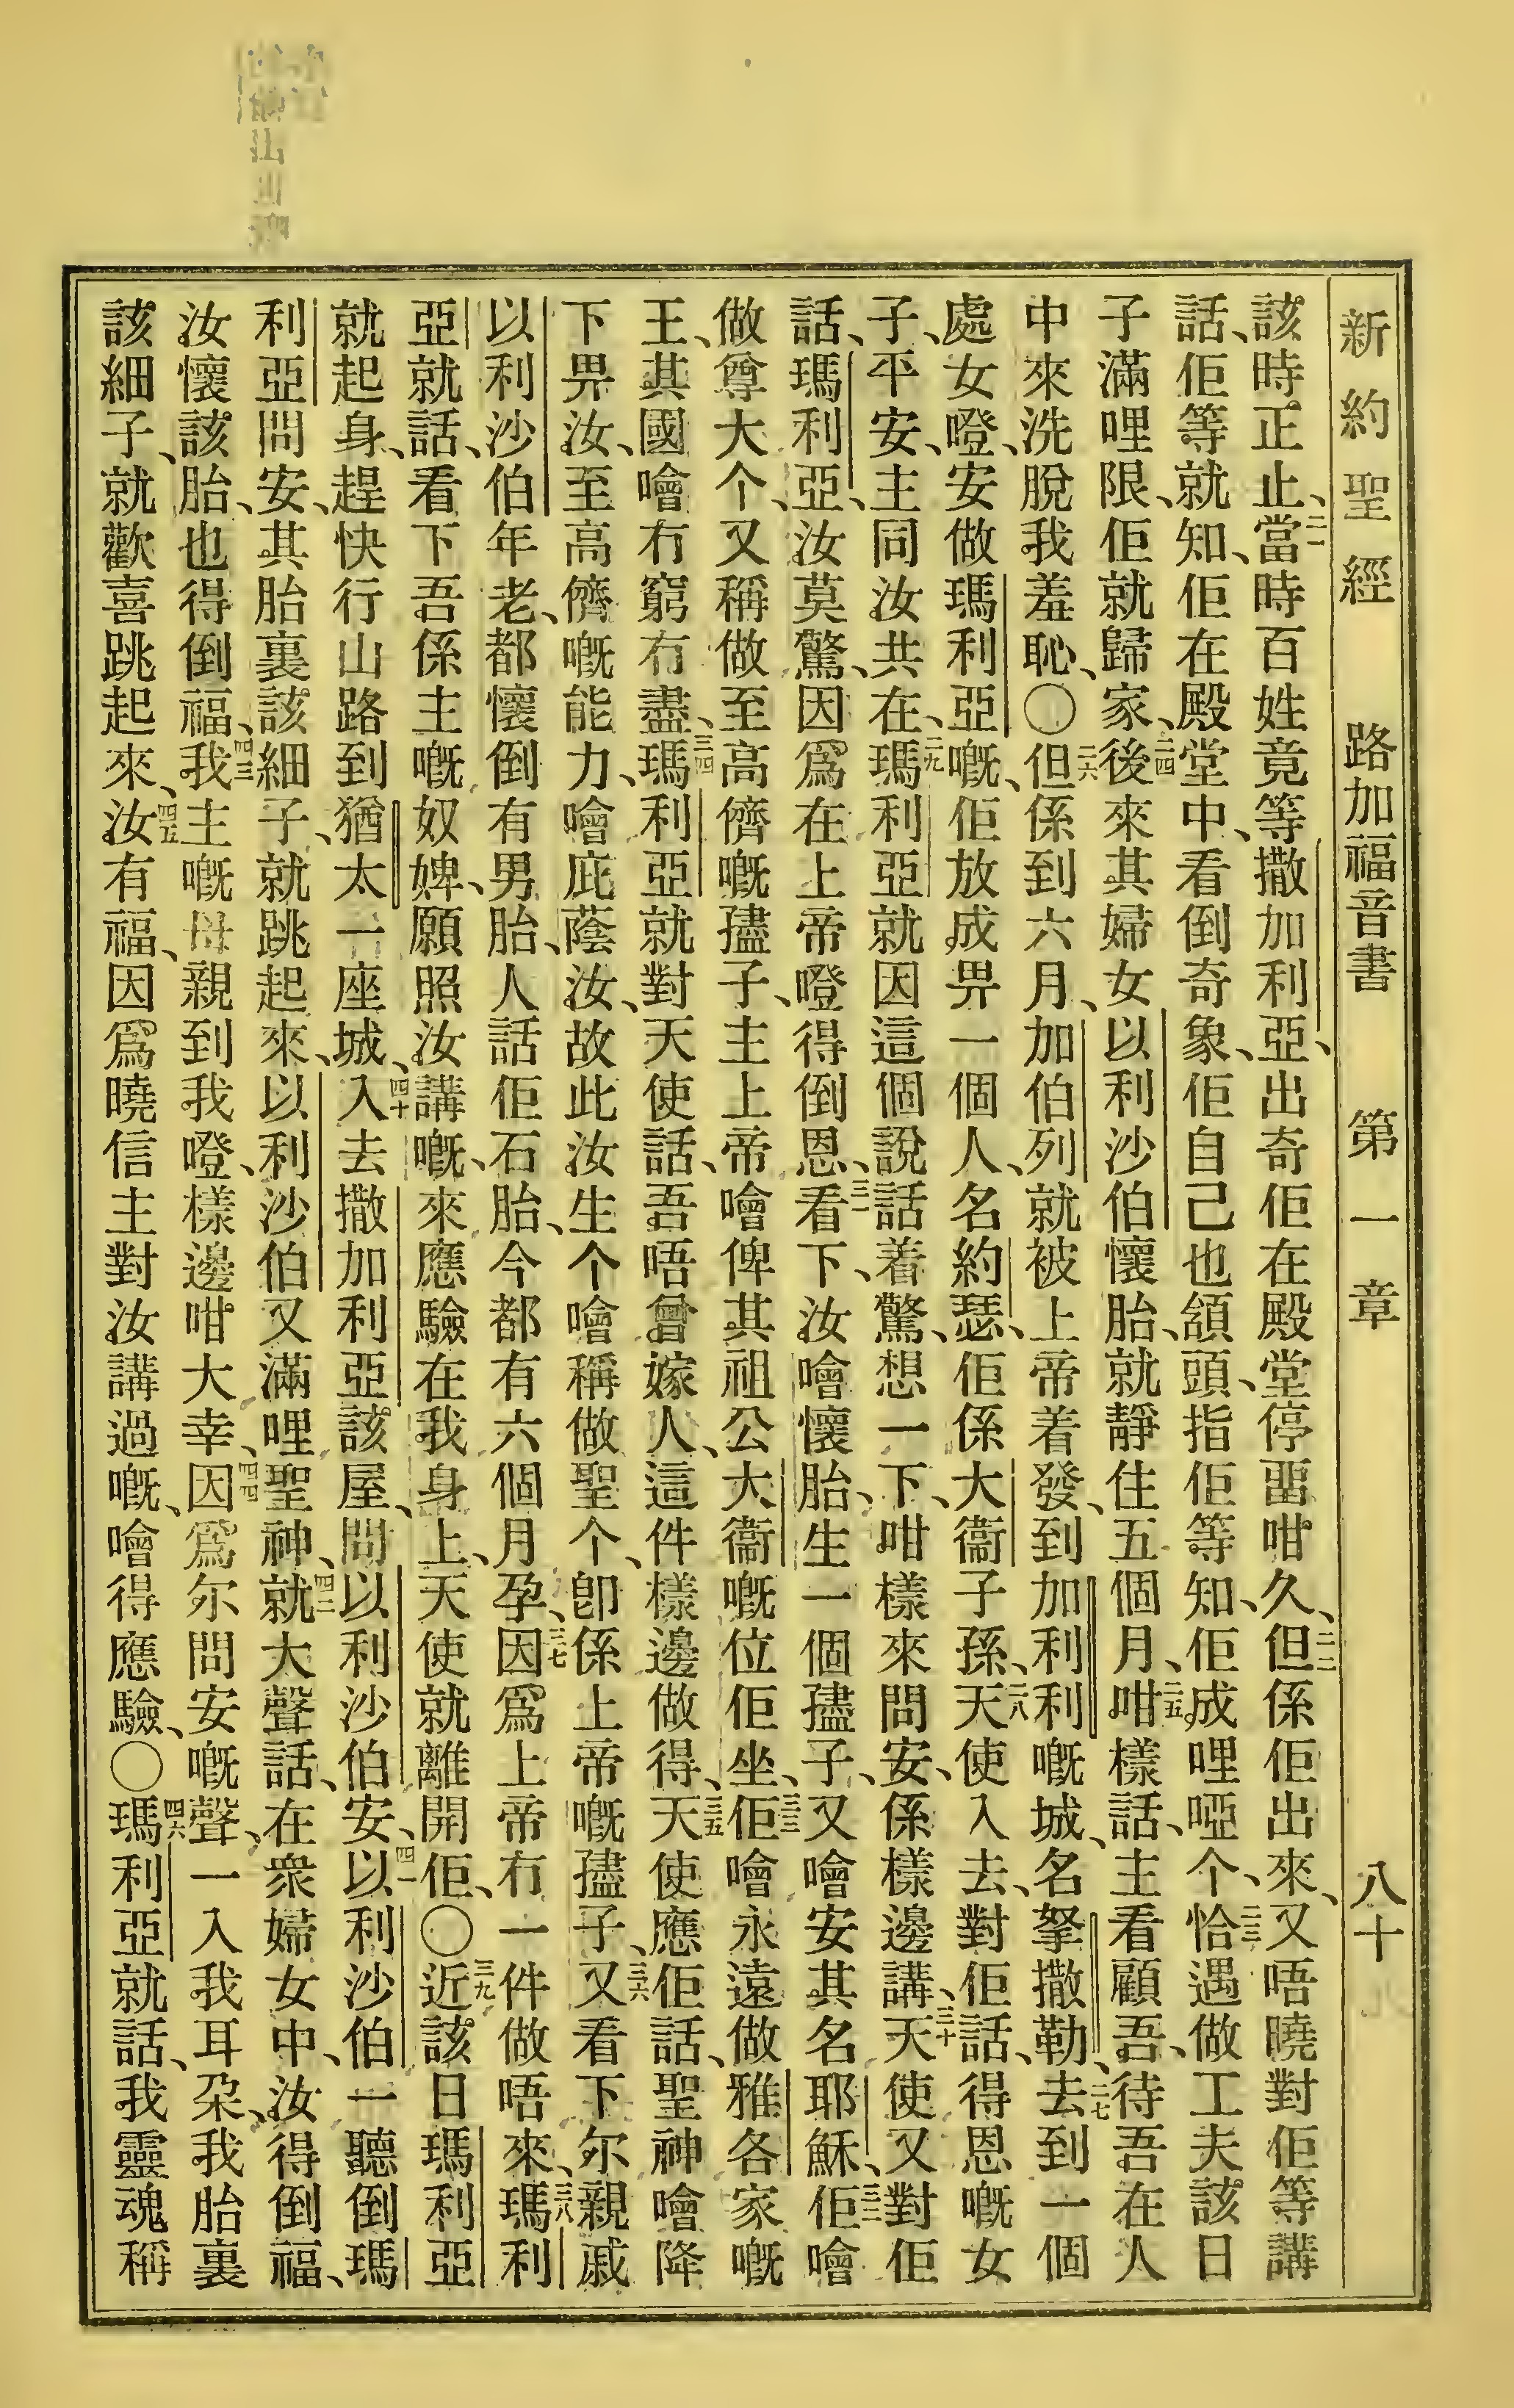 新約聖經 路加福音書 第一章 八十
該時正止、二一當時百姓竟等撒加利亞、出奇佢在殿堂停畱咁久、二二但係佢出來、又唔曉對佢等講
話、佢等就知、佢在殿堂中、看倒奇象、佢自己也頷頭、指佢等知、佢成哩啞个、二三恰遇做工夫該日
子滿哩限、佢就歸家、二四後來其婦女以利沙伯懷胎、就靜住五個月、二五咁樣話、主看顧吾、待吾在人
中來洗脫我羞恥、〇二六但係到六月、加伯列就被上帝着發、到加利利嘅城、名拏撒勒、二七去到一個
處女嶝、安做瑪利亞嘅、佢放成畀一個人、名約瑟、佢係大衞子孫、二八天使入去、對佢話、得恩嘅女
子、平安、主同汝共在、二九瑪利亞就因這個說話着驚、想一下、咁樣來問安、係樣邊講、三十天使又對佢
話、瑪利亞、汝莫驚、因爲在上帝嶝得倒恩、三一看下、汝噲懷胎、生一個孻子、又噲安其名耶穌、三二佢噲
做尊大个、又稱做至高儕嘅孻子、主上帝噲俾其祖公大衞嘅位佢坐、三三佢噲永遠做雅各家嘅
王、其國噲冇窮冇盡、三四瑪利亞就對天使話、吾唔曾嫁人、這件樣邊做得、三五天使應佢話、聖神噲降
下畀汝、至高儕嘅能力、噲庇蔭汝、故此汝生个噲稱做聖个、卽係上帝嘅孻子、三六又看下尔親戚
以利沙伯年老、都懷倒有男胎、人話佢石胎、今都有六個月孕、三七因爲上帝冇一件做唔來、三八瑪利
亞就話、看下吾係主嘅奴婢、願照汝講嘅、來應驗在我身上、天使就離開佢、〇三九近該日瑪利亞
就起身、趕快行山路到猶太一座城、四十入去撒加利亞該屋、問以利沙伯安、四一以利沙伯一聽倒瑪
利亞問安、其胎裏該細子、就跳起來、以利沙伯又滿哩聖神、四二就大聲話、在衆婦女中、汝得倒福、
汝懷該胎、也得倒福、四三我主嘅母親到我嶝、樣邊咁大幸、四四因爲尔問安嘅聲、一入我耳朶、我胎裏
該細子、就歡喜跳起來、四五汝有福、因爲曉信主對汝講過嘅、噲得應驗、〇四六瑪利亞就話、我靈魂稱